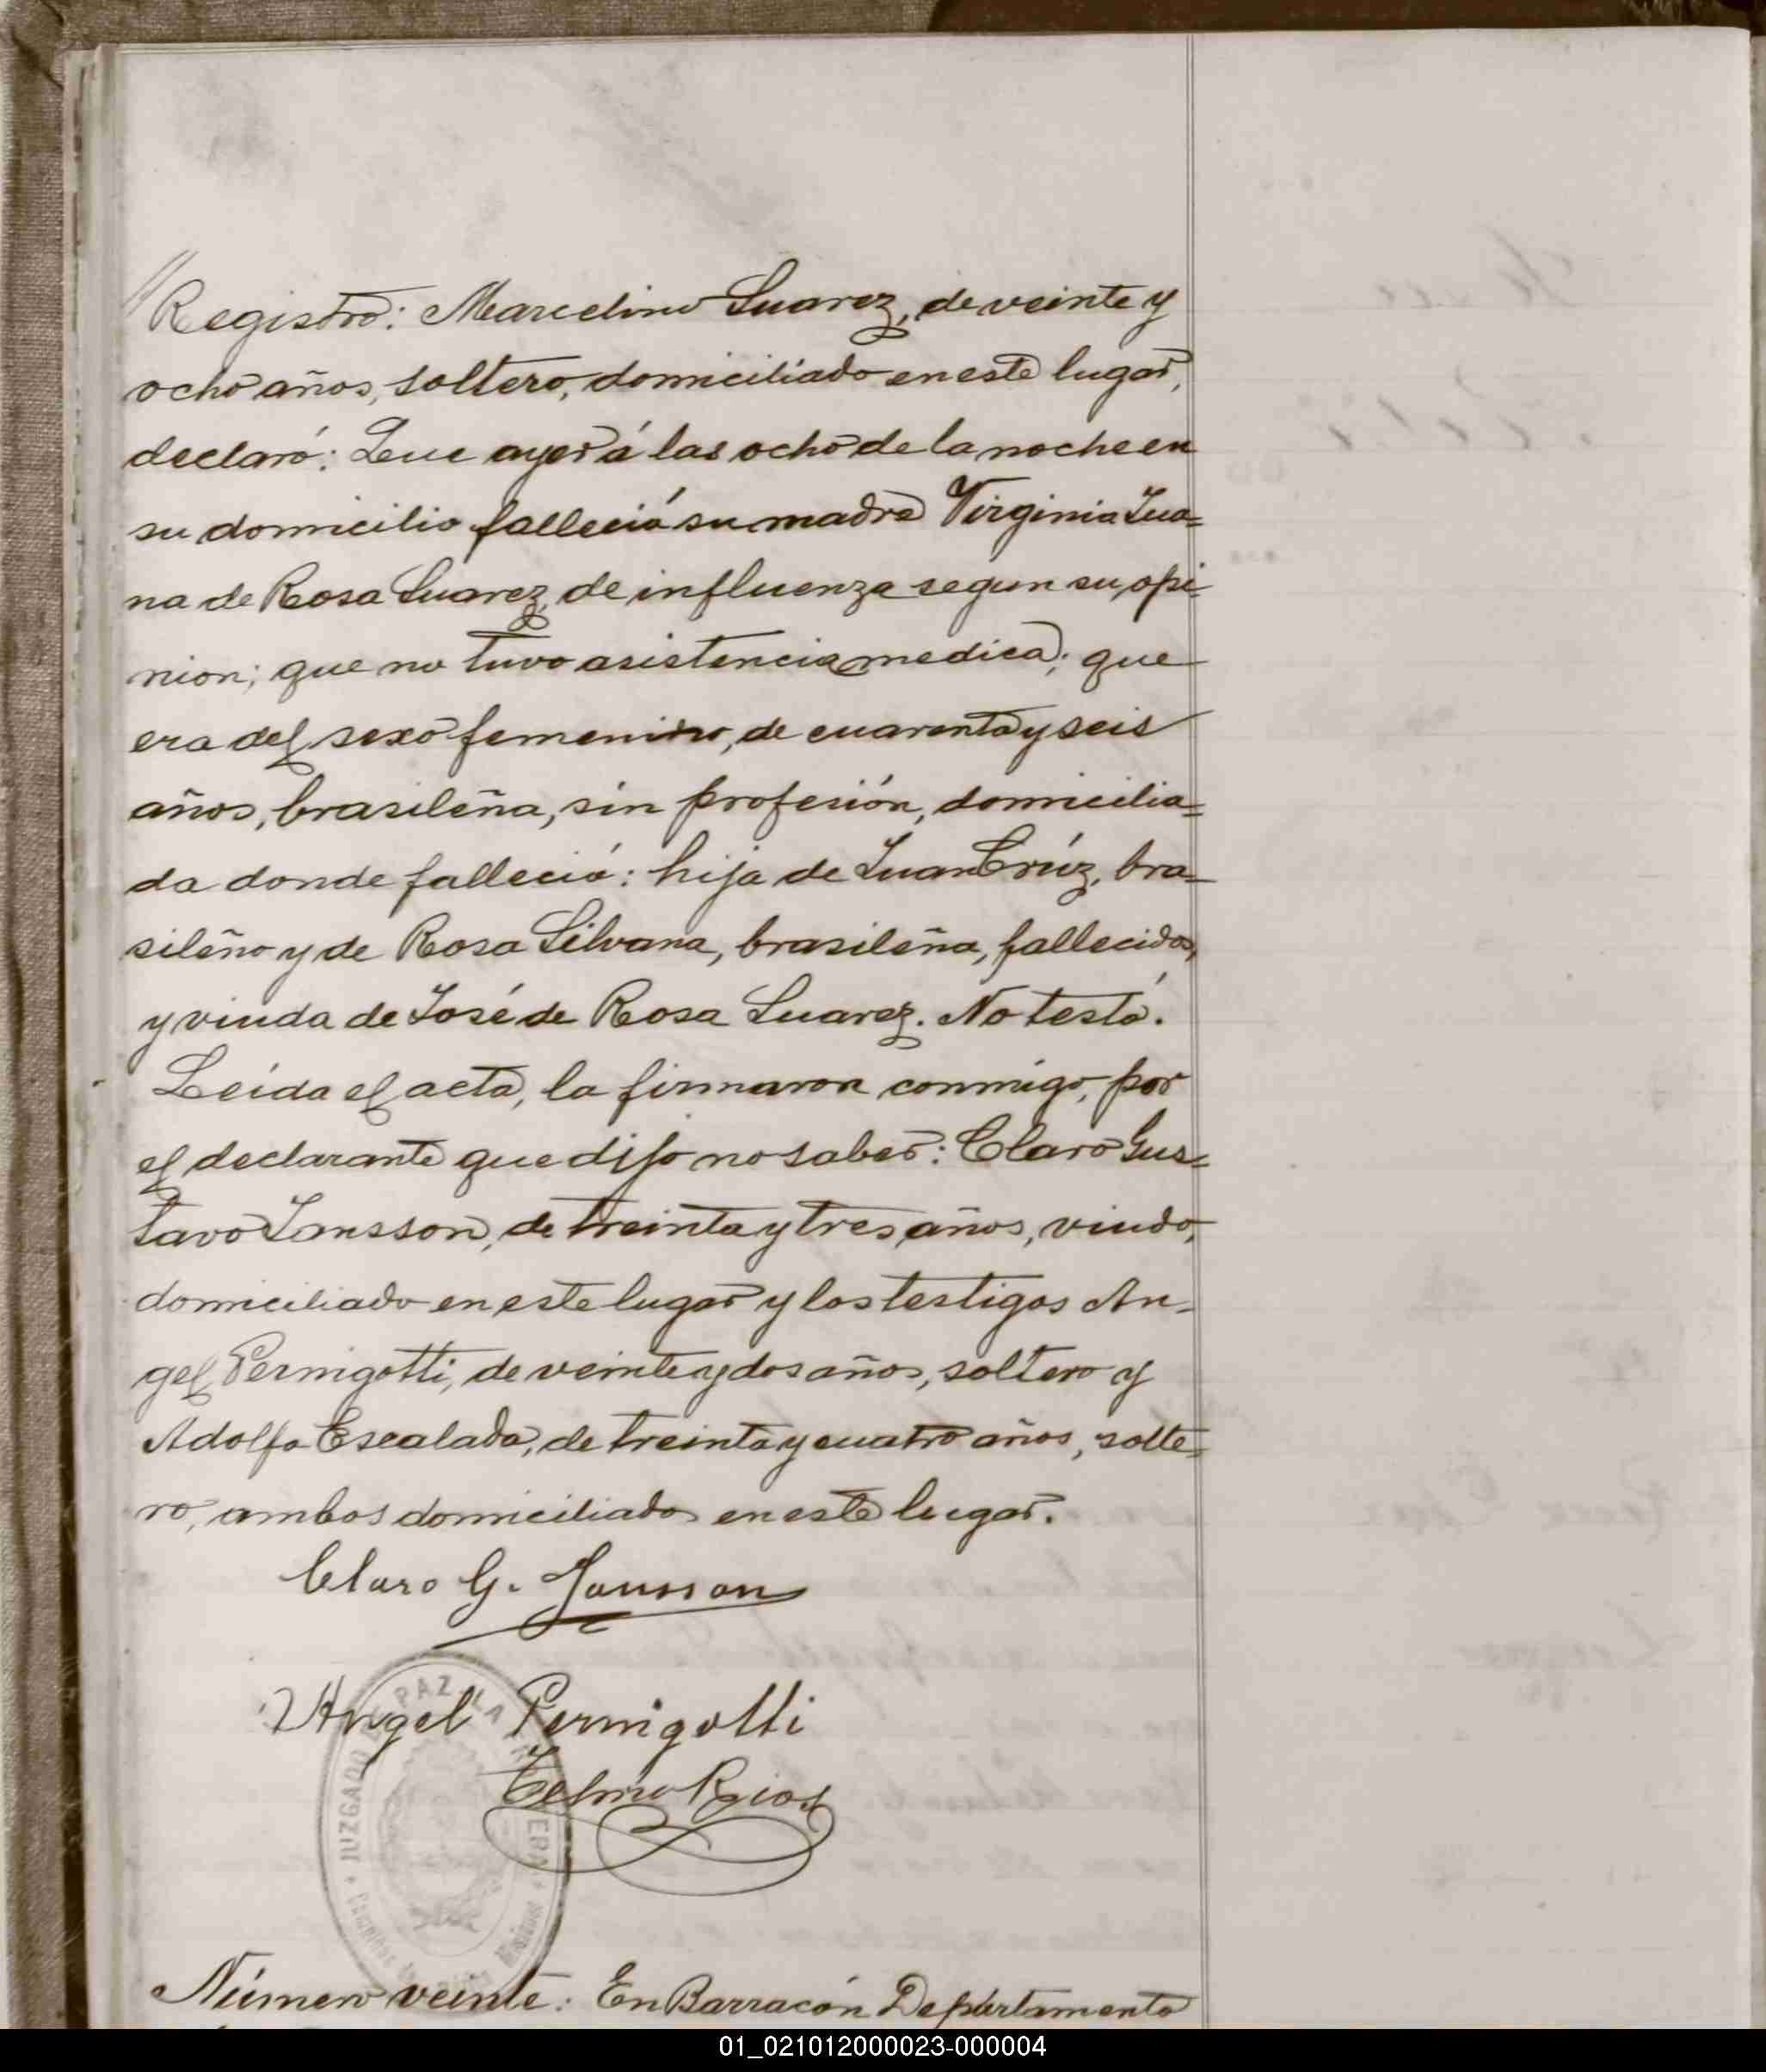 // Registro: Marcelino Suarez, de veinte y
ocho años, soltero, domiciliado en este lugar,
declaró: Que ayer á las ocho de la noche en
su domicilio falleció su madre Virginia Jua=
na de Rosa Suarez, de influenza segun su opi-
nion; que no tuvo asistencia medica; que
era del sexo femenino, de cuarenta y seis
años, brasileña, sin profesión, domicilia=
da donde falleció: hija de Juan Crúz, bra-
sileño y de Rosa Silvana, brasileña, fallecidos,
y viuda de José de Rosa Suarez. No testó.
Leída el acta, la firmaron conmigo, por
el declarante que dijo no saber: Claro Gus=
tavo Jansson, de treinta y tres años, viudo,
domiciliado en este lugar y los testigos An-
gel Pernigotti, de veinte y dos años, soltero y
Adolfo Escalada, de treinta y cuatro años, solte=
ro, ambos domiciliados en este lugar.
Claro G. Jansson
Angel Pernigotti
Telmo Rios
JUZGADO DE PAZ
Número veinte: En Barracón Departamento
01_021012000023-000004